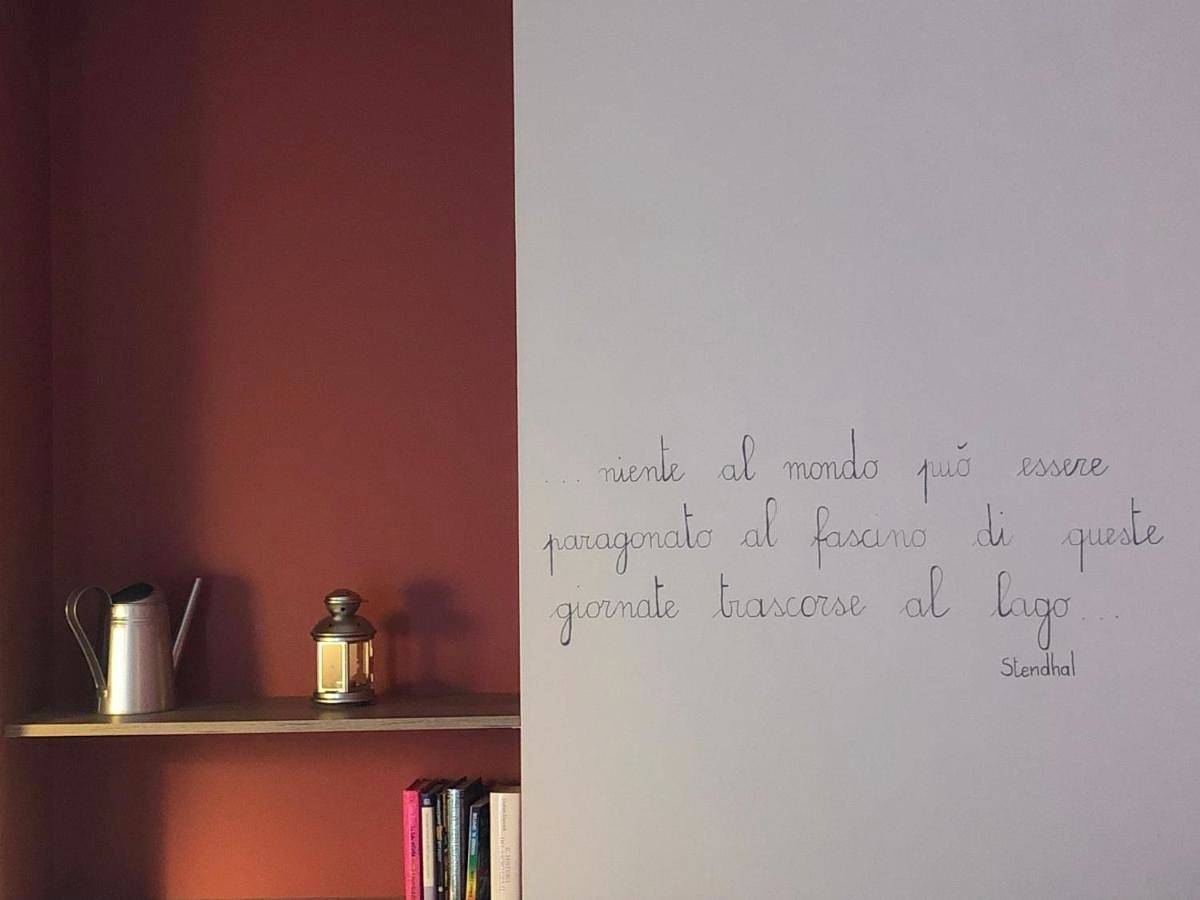 ... niente al mondo può essere
paragonato al fascino di queste
giornate trascorse al lago...
Stendhal